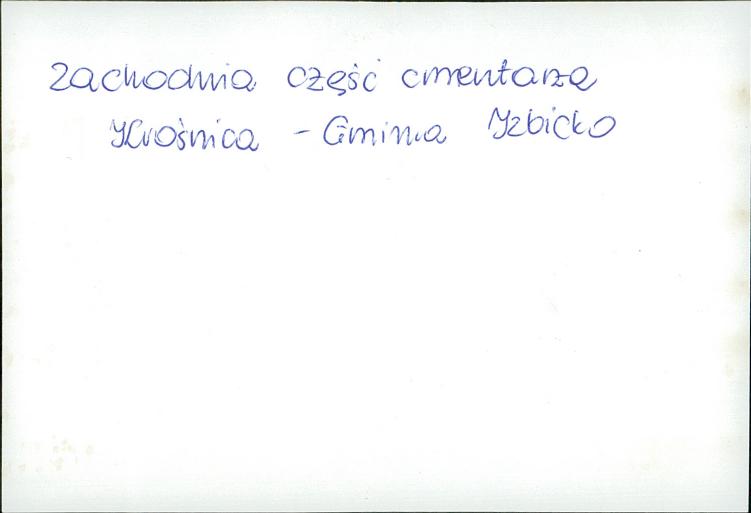 Zachodnia część cmentarza
Krośnica - Gmina Izbicko